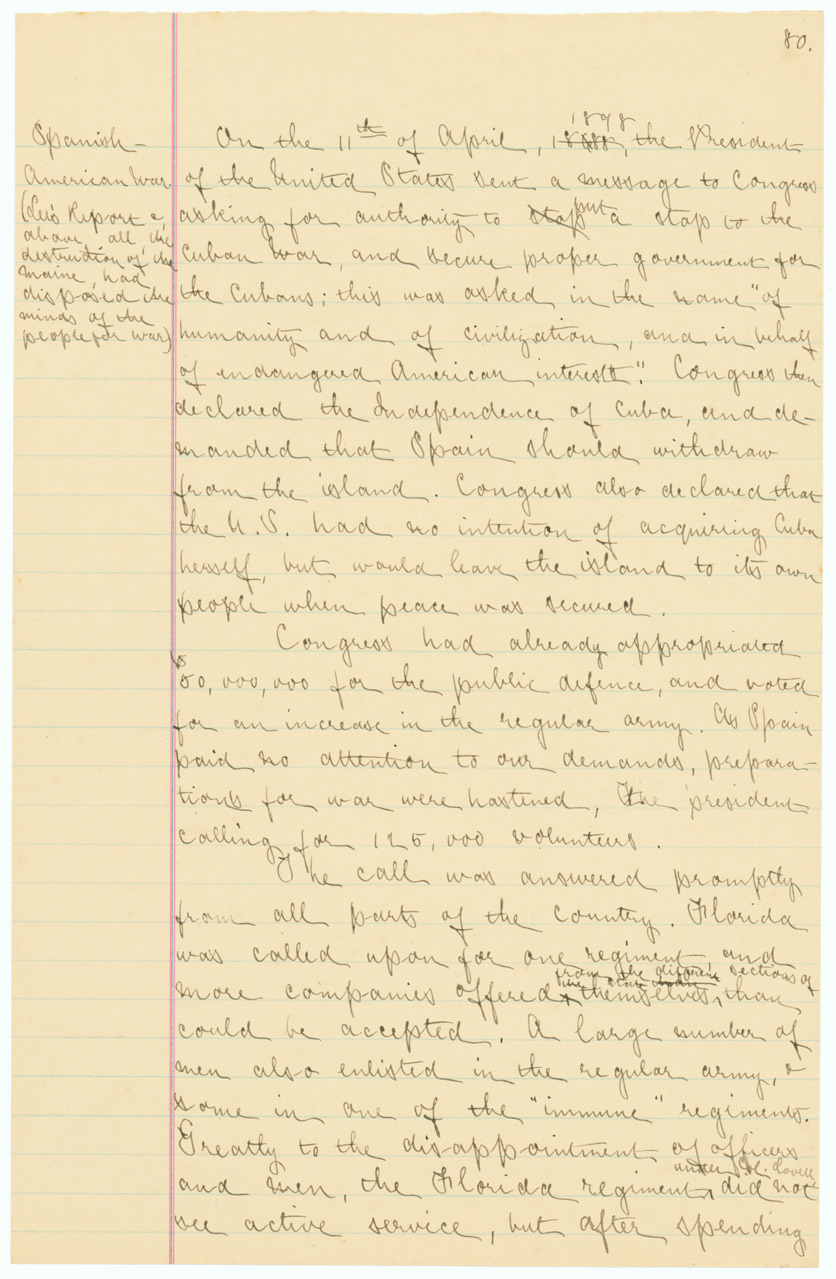 80.
Spanish-
American War.
(Lee's Report &,
above, all, the
destruction of the
Maine, had
disposed the
minds of the
people for war)
1898
On the 11th of April, 1888, the President
of the United States sent a message to Congress
put
asking for authority to stop a stop to the
Cuban War, and secure proper government for
the Cubans; this was asked in the name "of
humanity and of civilization, and in behalf
of endangered American interests". Congress then
declared the Independence of Cuba, and de-
manded that Spain should withdraw
from the island. Congress also declared that
the U.S. had no intention of acquiring Cuba
herself, but would leave the island to its own
people when peace was secured.
Congress had already appropriated
$50,000,000 for the public defence, and voted
for an increase in the regular army. As Spain
paid no attention to our demands, prepara-
tions for war were hastened, The president
calling for 125,000 volunteers.
The call was answered promptly
from all parts of the country. Florida
was called upon for one regiment, and
from the different sections of
the state
more companies offered themselves, than
could be accepted. A large number of
men also enlisted in the regular army, &
some in one of the "immune" regiments.
Greatly to the disappointment of officers
under Col.
and men, the Florida regiment, did not
see active service, but after spending